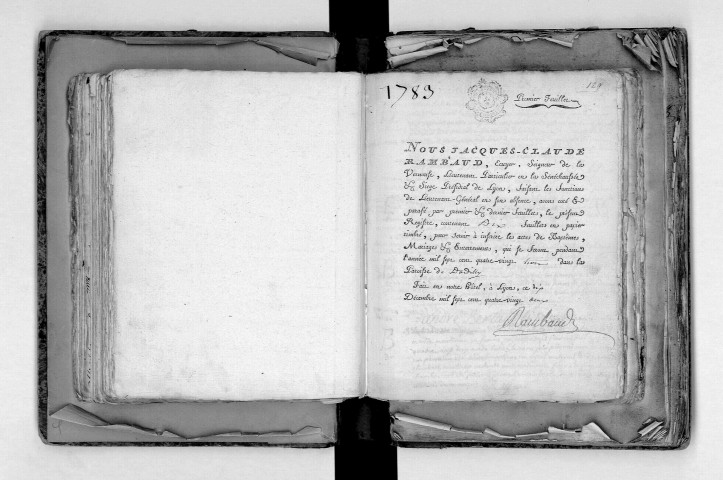 1783
129
Premier Feuillet
NOUS JACQUES-CLAUDE
RAMBAUD, Ecuyer, Seigneur de la
Vernouse, Lieutenant Particulier en la Sénéchaussée
& Siege Présidial de Lyon, faisant les fonctions
de Lieutenant-Général en son absence, avons coté &
paraphé par premier & dernier feuillets, le présent
Registre, contenant Dix feuillets en papier
timbré, pour servir à inscrire les actes de Baptêmes,
Mariages & Enterremens, qui se feront pendant
l'année mil sept cent quatre-vingt trois dans la
Paroisse de
Fait en notre Hôtel, à Lyon, ce dix
Décembre mil sept cent quatre-vingt deux
Rambaud